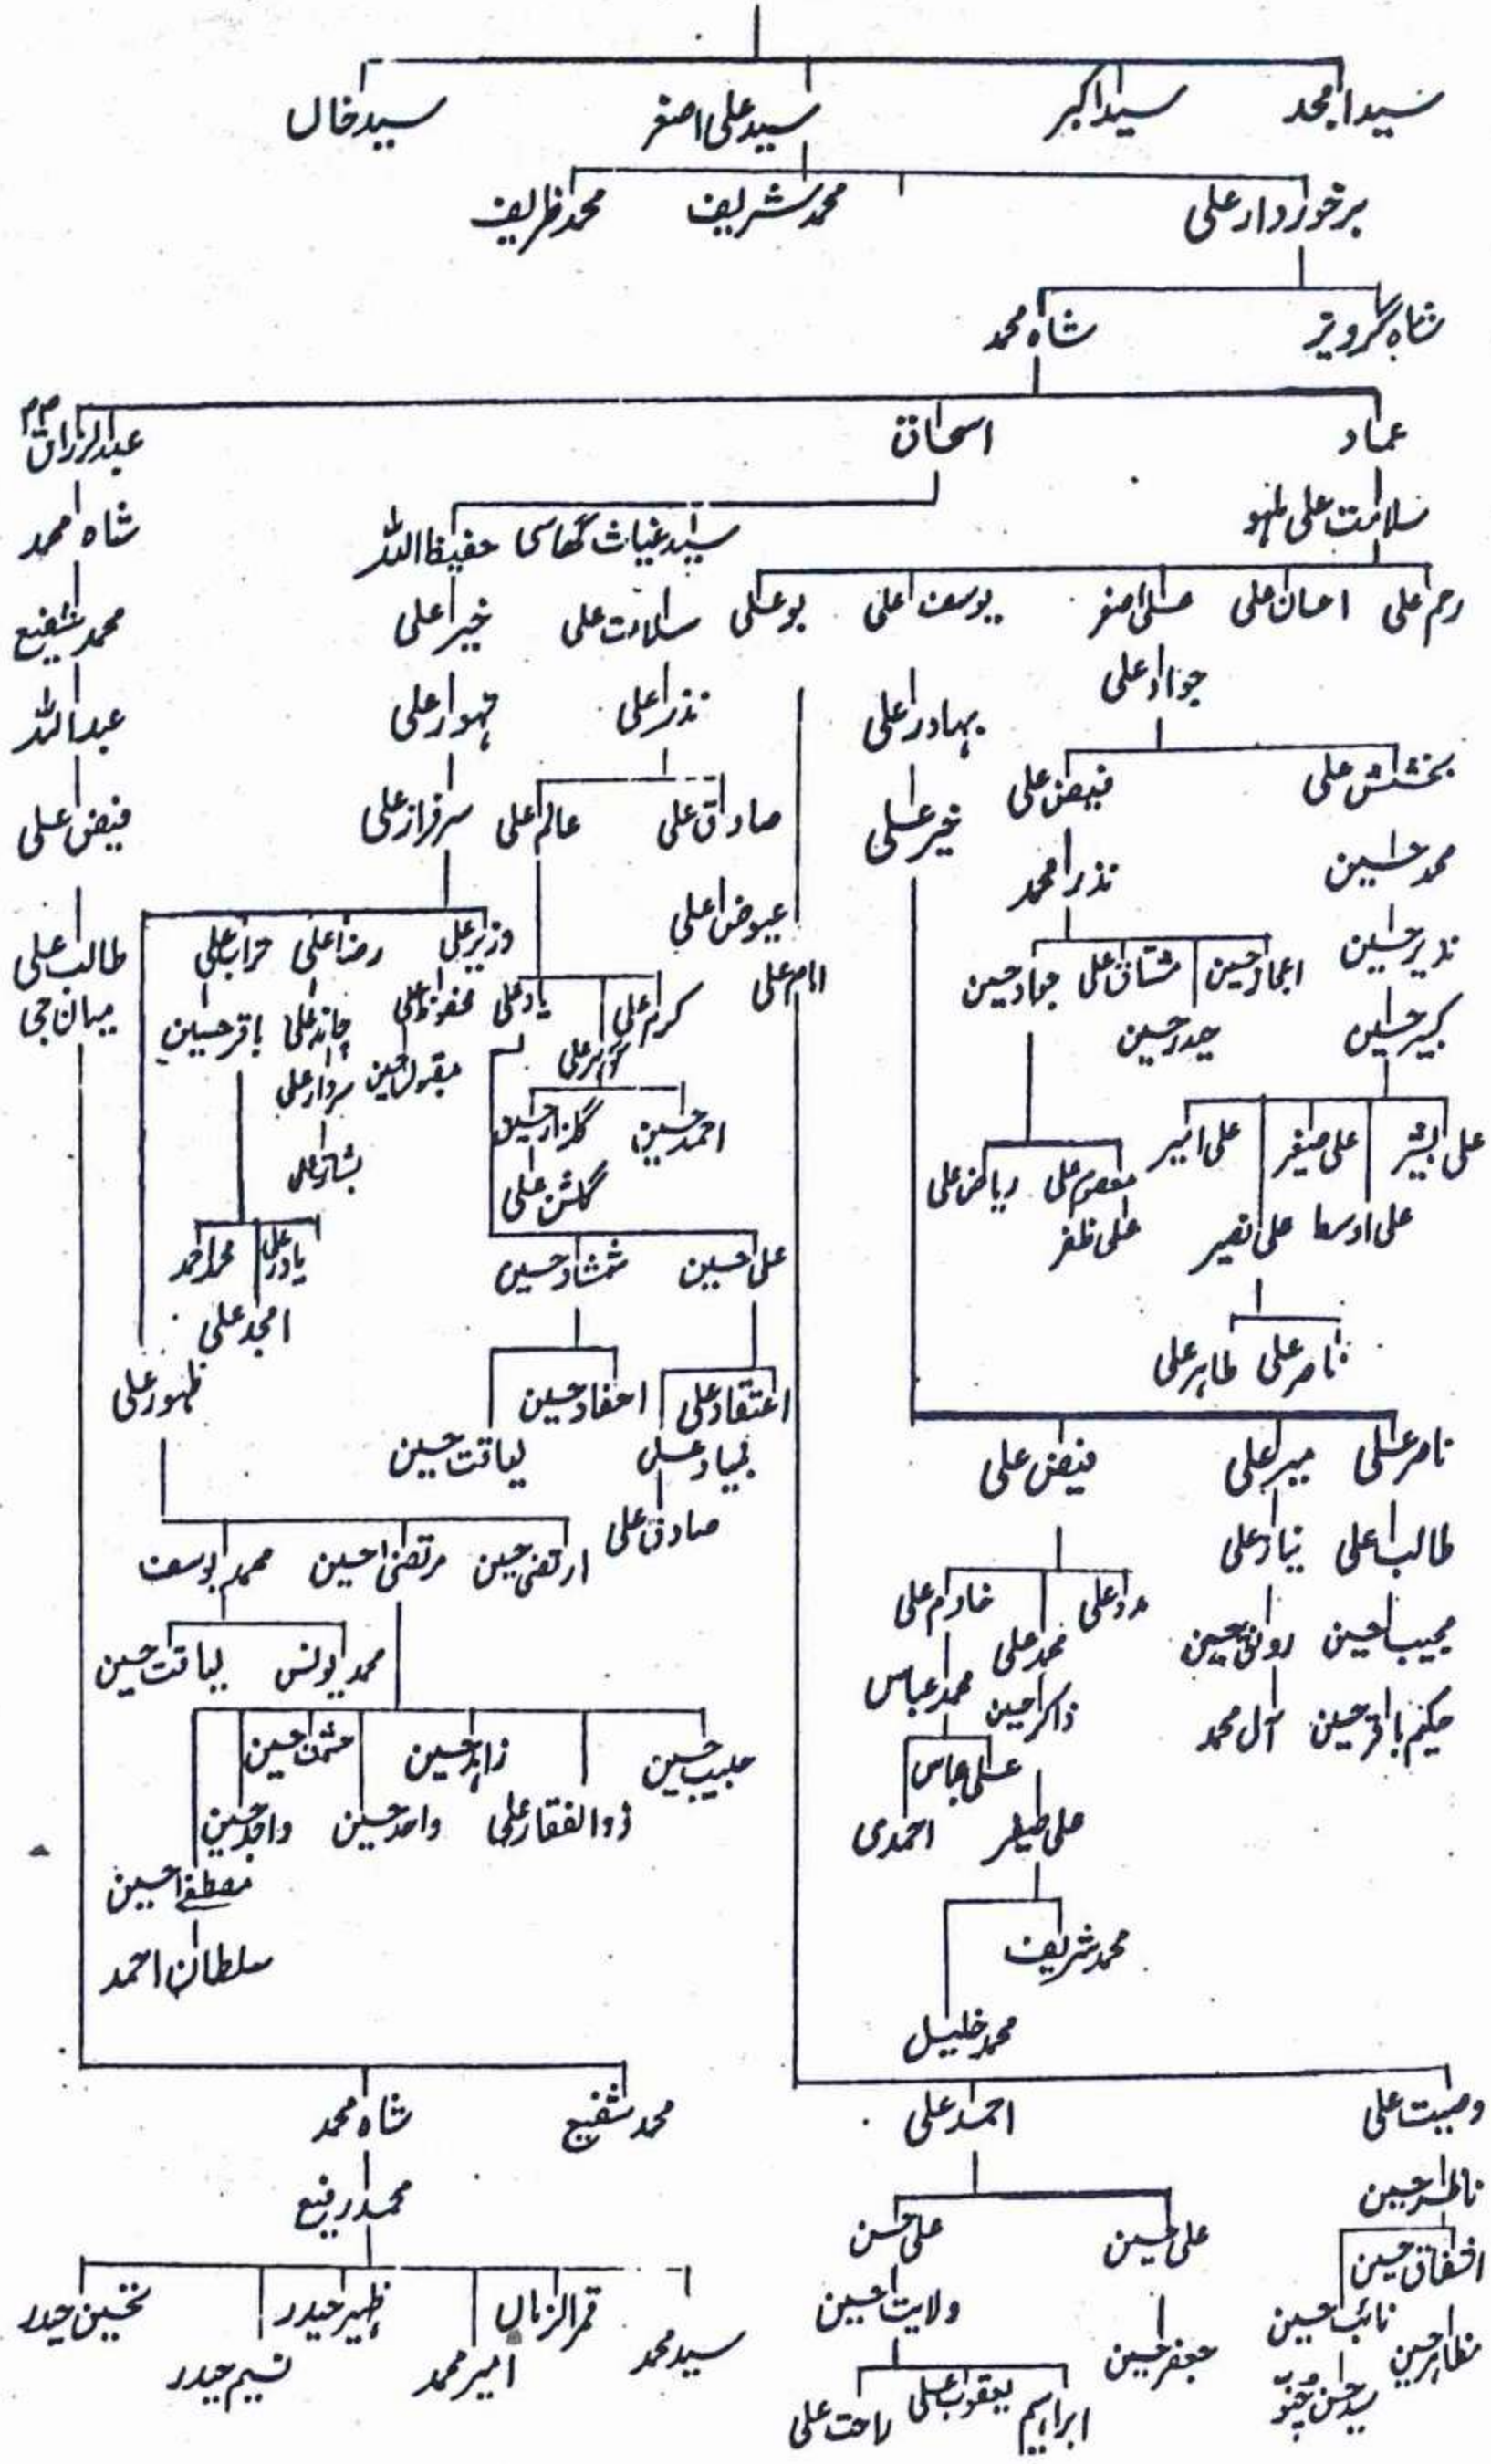 سید امجد سید اکبر سید علی اصغر سید خاں
برخوردار علی محمد شریف محمد ظریف
شاہ گرویز شاہ محمد
عماد اسحاق عبدالرزاق
سلامت علی سید غیاث گھاسی حفیظ اللہ شاہ محمد
رحم علی احسان علی علی اصغر یوسف علی بو علی سلامت علی خیر علی محمد شفیع
جواد علی بہادر علی نذر علی تہور علی عبداللہ
بخشش علی فیض علی خیر علی صادق علی عالم علی سرفراز علی فیض علی
محمد حسین نذر محمد عیوض علی وزیر علی رضا علی تراب علی طالب علی
نذیر حسین اعجاز حسین مشتاق علی جواد حسین امام علی کرم علی یاد علی محفوظ علی چاند علی باقر حسین میاں جی
کبیر حسین حیدر حسین اکبر علی مقبول حسین سردار علی
علی بشر علی صغیر علی امیر معصوم علی ریاض علی احمد حسین گلزار حسین بشارت علی
علی اوسط علی نصیر علی ظفر گلشن علی
علی حسین شمشاد حسین یاور علی محمد احمد
ناصر علی طاہر علی امجد علی
اعتقاد علی احفاد حسین ظہور علی
ناصر علی میر علی فیض علی بنیاد علی لیاقت حسین
طالب علی نیاز علی صادق علی ارتضیٰ حسین مرتضیٰ حسین محمد یوسف
مجیب حسین رونق حسین مدد علی محمد علی خادم علی محمد یونس لیاقت حسین
حکیم باقر حسین آل محمد ذاکر حسین محمد عباس
علی عباس حبیب حسین زاہد حسین حشمت حسین
علی صفدر احمدی ذوالفقار علی واحد حسین واجد حسین
مصطفےٰ حسین
محمد شریف سلطان احمد
محمد خلیل
وصیت علی احمد علی محمد شفیع شاہ محمد
ناظر حسین محمد رفیع
اشفاق حسین علی حسین علی حسن
نائب حسین ولایت حسین قمر الزماں ظہیر حیدر تحسین حیدر
مظاہر حسین جعفر حسین سید محمد امیر محمد نسیم حیدر
سید حسن چنّو ابراہیم یعقوب علی راحت علی